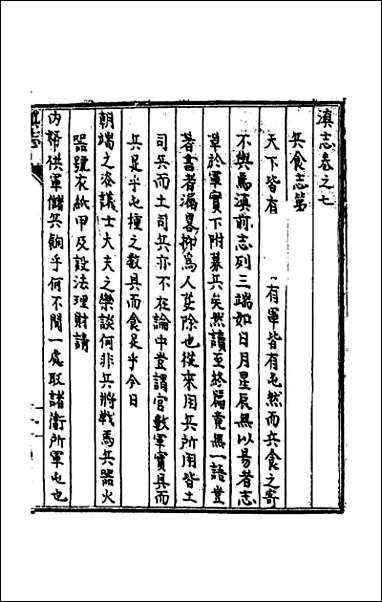 滇志卷之七
兵食志第
天下皆有　　有軍皆有屯然而兵食之寄
不與焉滇前志列三端如日月星辰無以易者志
草於軍實下附募兵矣然讀至終篇竟無一語豈
著書者漏畧抑爲人芟除也從來用兵所用皆土
司兵而土司兵亦不在論中豈謂官數軍實具而
兵足乎屯種之數具而食足乎今日
朝端之咨議士大夫之樂談何非兵將戰馬兵器火
器號衣紙甲及設法理財請
內帑供軍儲兵餉乎何不聞一處取諸衛所軍屯也
滇志